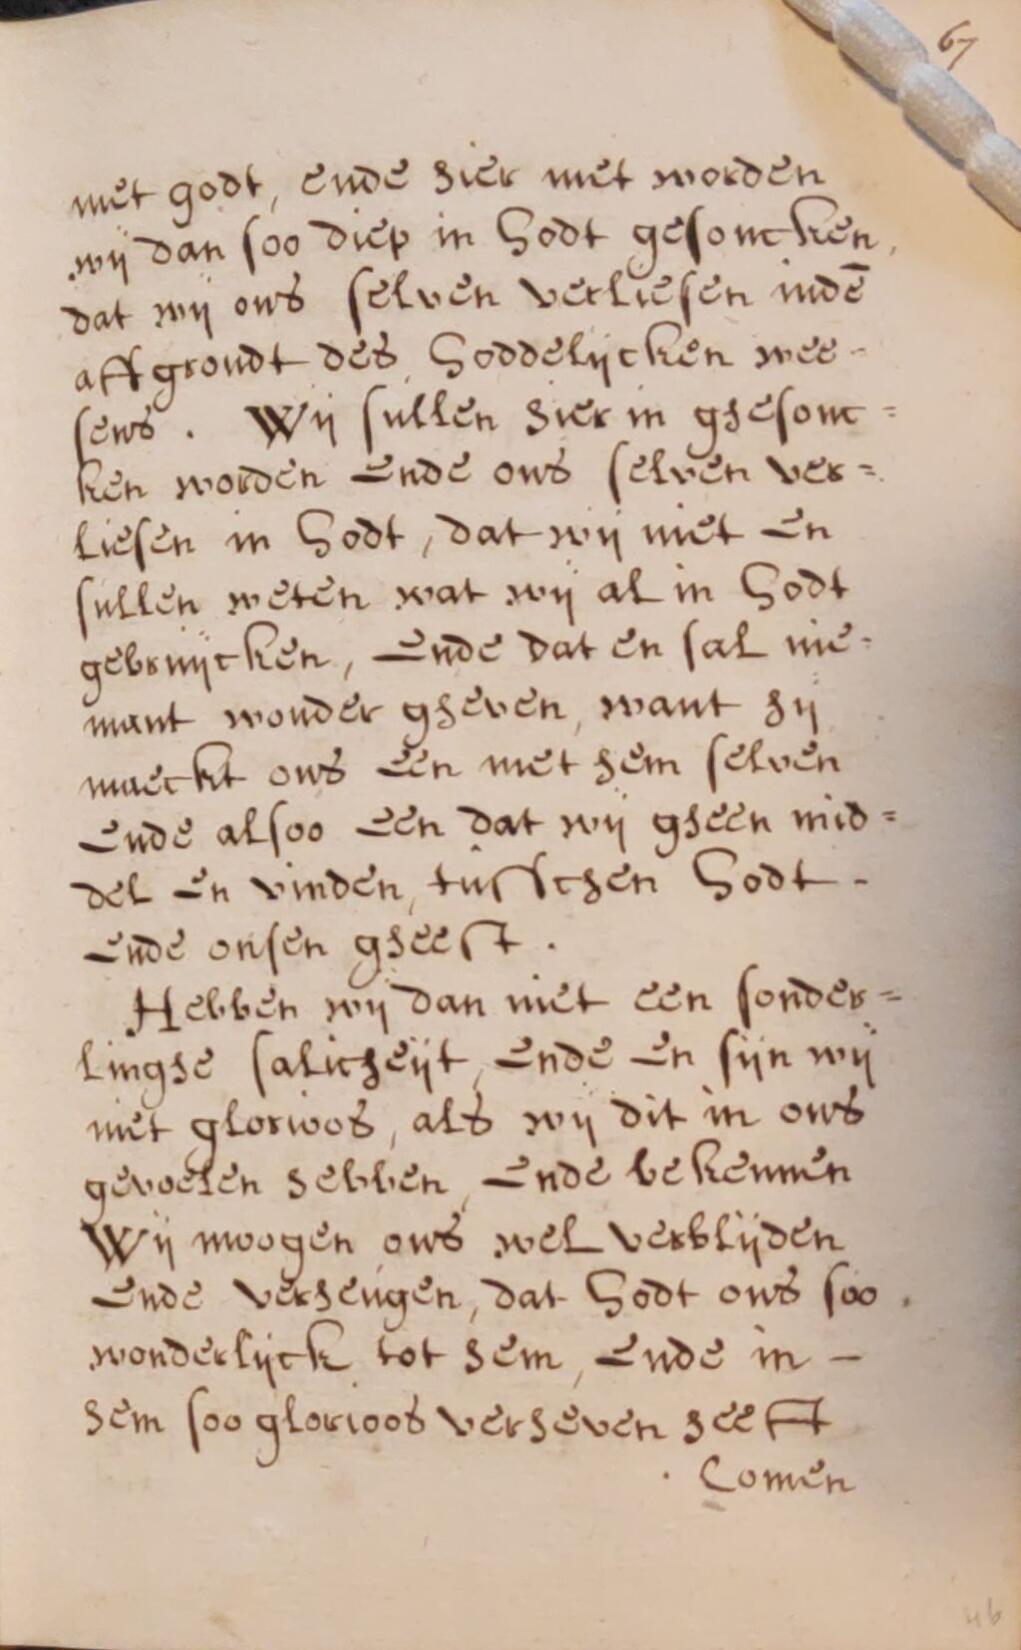 67
met godt, ende hier met worden
wij dan soo diep in Godt gesoncken,
dat wij ons selven verliesen indē
affgrondt des Goddelijcken wee-
sens. Wij sullen hier in ghesonc=
ken worden ende ons selven ver=
liesen in Godt, dat wij niet en
sullen weten wat wij al in Godt
gebruijcken, ende dat en sal nie=
mant wonder gheven, want hij
maeckt ons een met hem selven
ende alsoo een dat wij gheen mid=
del en vinden, tusschen Godt-
ende onsen gheest.
Hebben wij dan niet een sonder=
linghe salicheijt, ende en sijn wij
niet glorioos, als wij dit in ons
gevoelen hebben, ende bekennen
Wij moogen ons wel verblijden
ende verheugen, dat Godt ons soo
wonderlijck tot hem, ende in-
hem soo glorioos verheven heeft
Comen
46